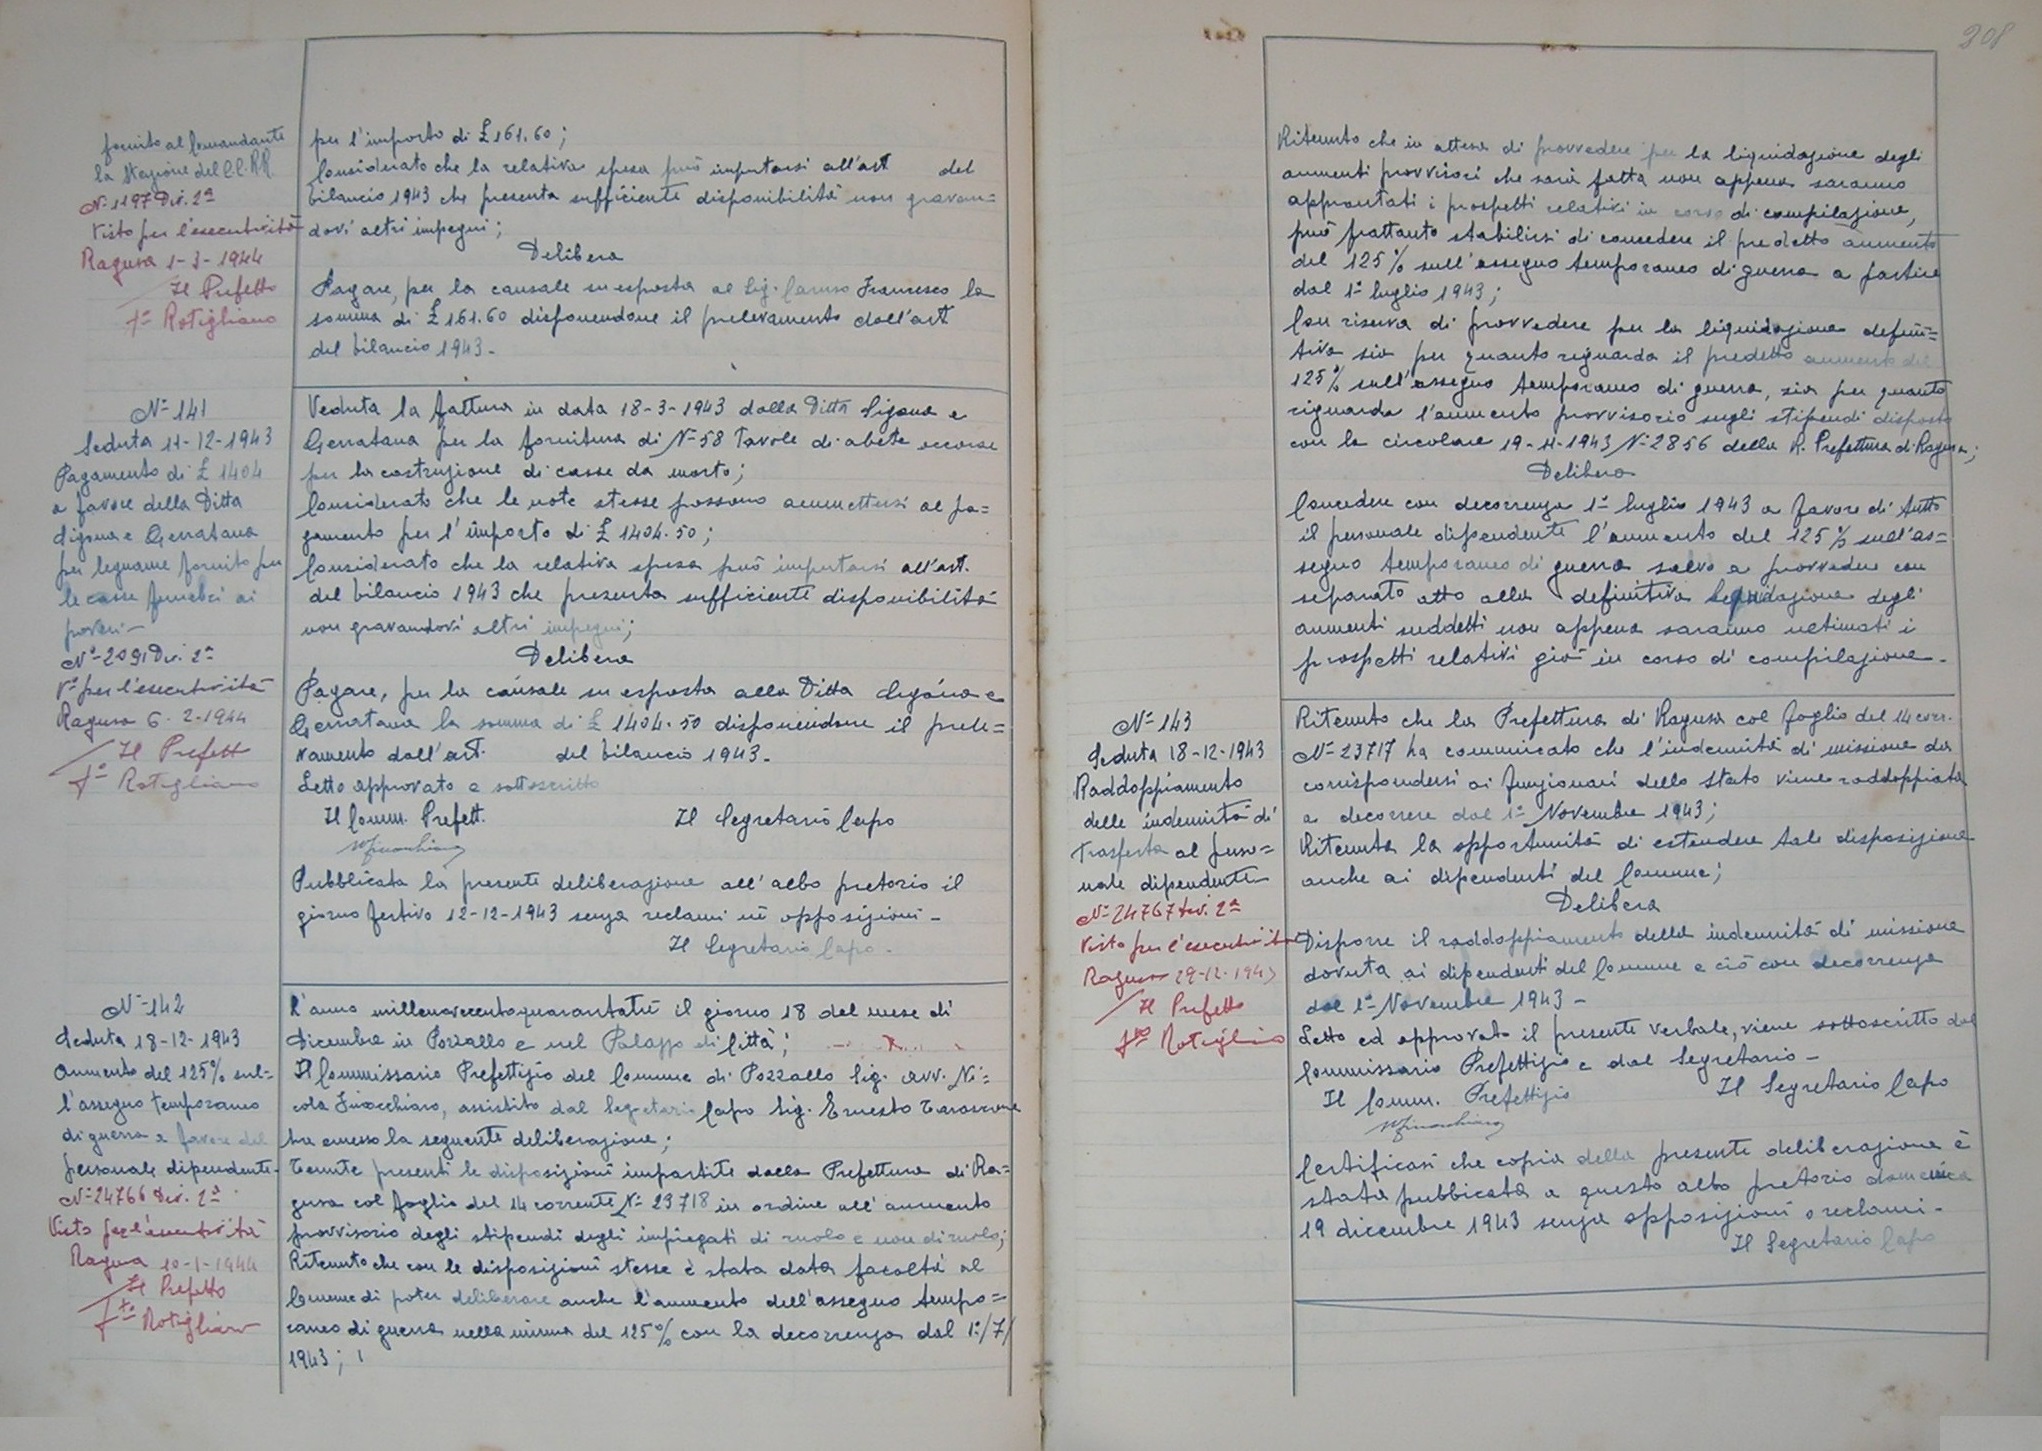 308
fornito al Comandante
la Stazione dei CC. RR.
N. 1197 Div. 2ª
Visto per l'esecutività
Ragusa 1-3-1944
Il Prefetto
Fº Rotigliano
per l'importo di £ 161.60;
Considerato che la relativa spesa può imputarsi all'art del
bilancio 1943 che presenta sufficiente disponibilità non gravan=
dovi altri impegni;
Delibera
Pagare, per la causale su esposta al Sig. Caruso Francesco la
somma di £ 161.60 disponendone il prelevamento dall'art
del bilancio 1943.-
Nº 141
Seduta 11-12-1943
Pagamento di £ 1404
a favore della Ditta
Sigona e Gerratana
per legname fornito per
le casse funebri ai
poveri -
Nº 2091 Div. 2ª
Vº per l'esecutività
Ragusa 6-2-1944
Il Prefett
Fº Rotigliano
Veduta la fattura in data 18-3-1943 dalla Ditta Sigona e
Gerratana per la fornitura di Nº 58 Tavole di abete occorse
per la costruzione di casse da morto;
Considerato che le note stesse possono ammettersi al pa=
gamento per l'importo di £ 1404.50;
Considerato che la relativa spesa può imputarsi all'art.
del bilancio 1943 che presenta sufficiente disponibilità
non gravandovi altri impegni;
Delibera
Pagare, per la causale su esposta alla Ditta Sigona e
Gerratana la somma di £ 1404.50 disponendone il prele=
vamento dall'art. del bilancio 1943.-
Letto approvato e sottoscritto
Il Comm. Prefett. Il Segretario Capo
Pubblicata la presente deliberazione all'albo pretorio il
giorno festivo 12-12-1943 senza reclami nè opposizioni -
Il Segretario Capo.
Nº 142
Seduta 18-12-1943
Aumento del 125% sul=
l'assegno temporaneo
di guerra a favore del
personale dipendente.
Nº 24766 Div. 2ª
Visto per l'esecutività
Ragusa 10-1-1944
Il Prefetto
Fto Rotigliano
L'anno millenovecentoquarantatrè il giorno 18 del mese di
Dicembre in Pozzallo e nel Palazzo di Città;
Il Commissario Prefettizio del Comune di Pozzallo Sig. avv. Ni=
cola Finocchiaro, assistito dal Segretario Capo Sig. Ernesto Tarascone
ha emesso la seguente deliberazione;
Tenute presenti le disposizioni impartite dalla Prefettura di Ra=
gusa col foglio del 14 corrente Nº 23718 in ordine all'aumento
provvisorio degli stipendi degli impiegati di ruolo e non di ruolo;
Ritenuto che con le disposizioni stesse è stata data facoltà al
Comune di poter deliberare anche l'aumento dell'assegno tempo=
raneo di guerra nella misura del 125% con la decorrenza dal 1º/7/
1943;
Ritenuto che in attesa di provvedere per la liquidazione degli
aumenti provvisori che sarà fatta non appena saranno
approntati i prospetti relativi in corso di compilazione,
può frattanto stabilirsi di concedere il predetto aumento
del 125% sull'assegno temporaneo di guerra a partire
dal 1º luglio 1943;
Con riserva di provvedere per la liquidazione defini=
tiva sia per quanto riguarda il predetto aumento del
125% sull'assegno temporaneo di guerra, sia per quanto
riguarda l'aumento provvisorio sugli stipendi disposto
con la circolare 19-11-1943 Nº 2856 della R. Prefettura di Ragusa;
Delibera
Concedere con decorrenza 1º luglio 1943 a favore di tutto
il personale dipendente l'aumento del 125% sull'as=
segno temporaneo di guerra salvo a provvedere con
separato atto alla definitiva liquidazione degli
aumenti suddetti non appena saranno ultimati i
prospetti relativi già in corso di compilazione.
Nº 143
Seduta 18-12-1943
Raddoppiamento
delle indennità di
Trasferta al perso=
nale dipendente
Nº 24767 Div. 2ª
Visto per l'esecutività
Ragusa 29-12-1943
Il Prefetto
Fto Rotigliano
Ritenuto che la Prefettura di Ragusa col foglio del 14 corr.
Nº 23717 ha comunicato che l'indennità di missione da
corrispondersi ai funzionari dello Stato viene raddoppiata
a decorrere dal 1º Novembre 1943;
Ritenuta la opportunità di estendere tale disposizione
anche ai dipendenti del Comune;
Delibera
Disporre il raddoppiamento della indennità di missione
dovuta ai dipendenti del Comune e ciò con decorrenza
dal 1º Novembre 1943 -
Letto ed approvato il presente verbale, viene sottoscritto dal
Commissario Prefettizio e dal Segretario -
Il Comm. Prefettizio Il Segretario Capo
Certificasi che copia della presente deliberazione è
stata pubblicata a questo albo pretorio domenica
19 dicembre 1943 senza opposizioni o reclami -
Il Segretario Capo